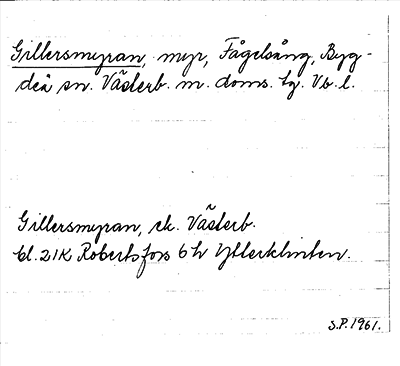 Gillersmyran, myr, Fågelsång, Byg-
deå sn. Västerb. m. doms. tg. Vb. l.
Gillersmyran, ek. Västerb.
bl. 21K Robertsfors 6 h Ytterklinten.
S.P. 1961.